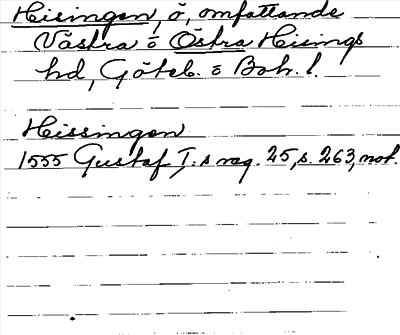 Hisingen, ö, omfattande
Västra o Östra Hisings
hd, Göteb. o Boh. l.
Hissingen
1555 Gustaf I:s reg. 25, s. 263, not.